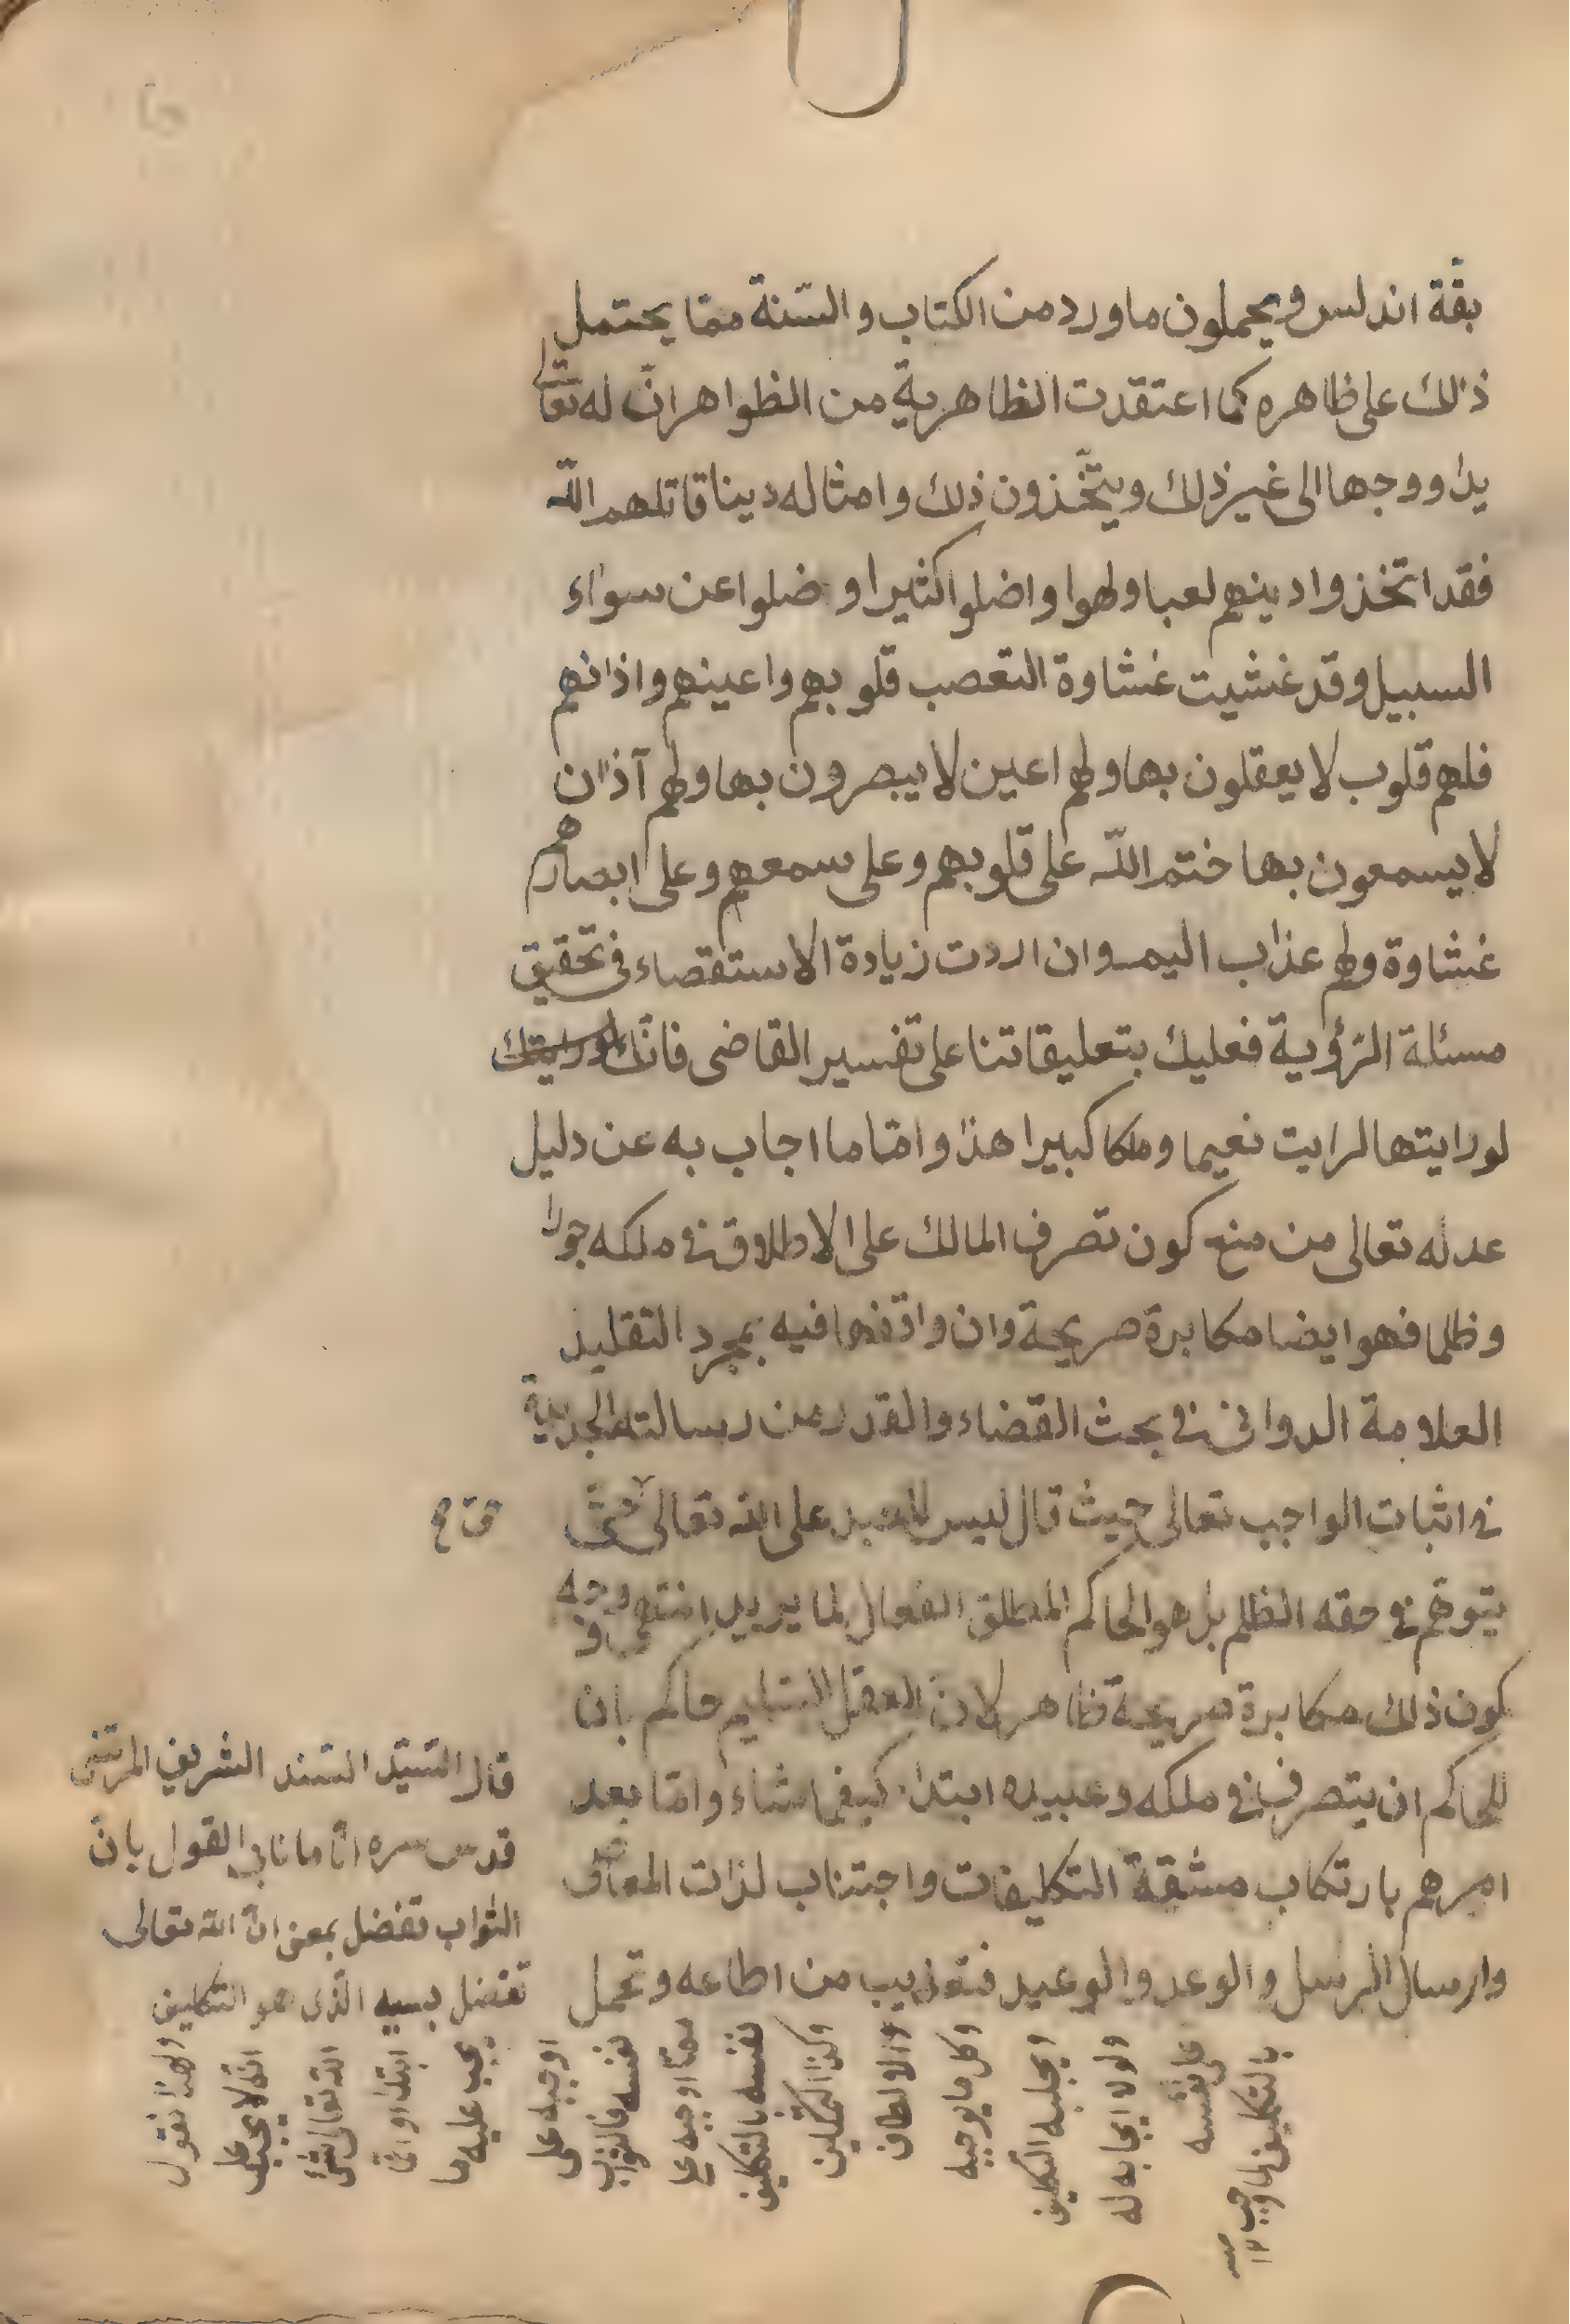 بقة اندلس ويحملون ما ورد من الكتاب والسّنة ممّا يحتمل
ذلك على ظاهره كما اعتقدت الظاهرية من الظواهر انّ له تعالى
يدا ووجها الى غير ذلك ويتّخذون ذلك وامثاله دينا قاتلهم اللّه
فقد اتخذوا دينهم لعبا ولهوا واضلوا كثيرا وضلوا عن سواء
السبيل وقد غشيت غشاوة التعصب قلوبهم واعينهم واذانهم
فلهم قلوب لا يعقلون بها ولهم اعين لا يبصرون بها ولهم آذان
لا يسمعون بها ختم اللّه على قلوبهم وعلى سمعهم وعلى ابصارهم
غشاوة ولهم عذاب اليم وان اردت زيادة الاستقصاء في تحقيق
مسئلة الرّؤية فعليك بتعليقاتنا على تفسير القاضى فانّك
لو رايتها لرايت نعيما وملكا كبيرا هذا وامّا ما اجاب به عن دليل
عدله تعالى من منع كون تصرف المالك على الاطلاق في ملكه جورا
وظلما فهو ايضا مكابرة صريحة وان وافقها فيه بمجرد التقليد
العلامة الدوانى في بحث القضاء والقدر من رسالته الجديدة
في اثبات الواجب تعالى حيث قال ليس للعبد على الله تعالى حقّ
يتوهّم في حقه الظلم بل هو الحاكم المطلق الفعال لما يريد انتهى ووجه
كون ذلك مكابرة صريحة ظاهر لانّ العقل السّليم حاكم بان
للحاكم ان يتصرف في ملكه وعبيده ابتداء كيفما شاء وامّا بعد
امرهم بارتكاب مشقة التكليفات واجتناب لذات
وارسال الرسل والوعد والوعيد فتعذيب من اطاعه وتحمل
قال السّيّد السّند الشريف المرتضى
قدس سره انّا ما نابى القول بانّ
الثواب تفضل بمعنى انّ الله تعالى
تفضل بسببه الّذى هو التكليف
ولهذا نقول
انّه لا يجب على
الله تعالى شئ
ابتداء وانّما
يجب عليه ما
اوجبه على
نفسه فالثواب
ممّا اوجبه على
نفسه بالتكليف
وكذا التمكين
والالطاف
وكل ما يوجبه
ويجلبه التكليف
ولولا ايجابه له
على نفسه
بالتكليف لما وجب
١٢